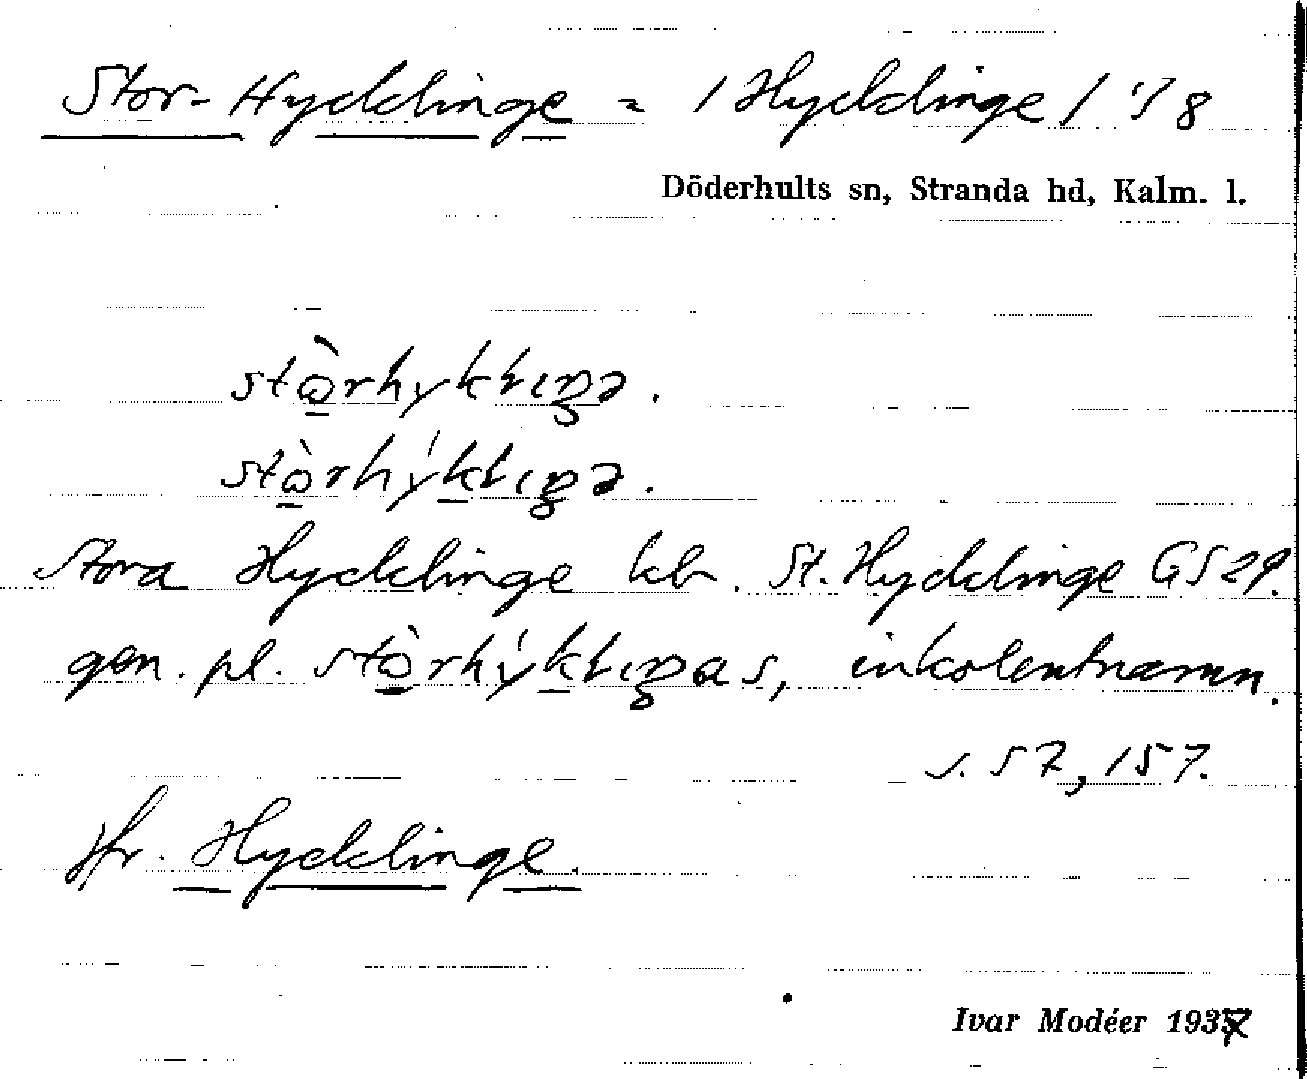 Stor-Hycklinge = / Hycklinge / 1/8
Döderhults sn, Stranda hd, Kalm. l.
Stora Hycklinge kb. St. Hycklinge GS 29.
gen. pl. inkolentnamn.
s. 57, 157.
Jfr. Hycklinge.
Ivar Modéer 1937